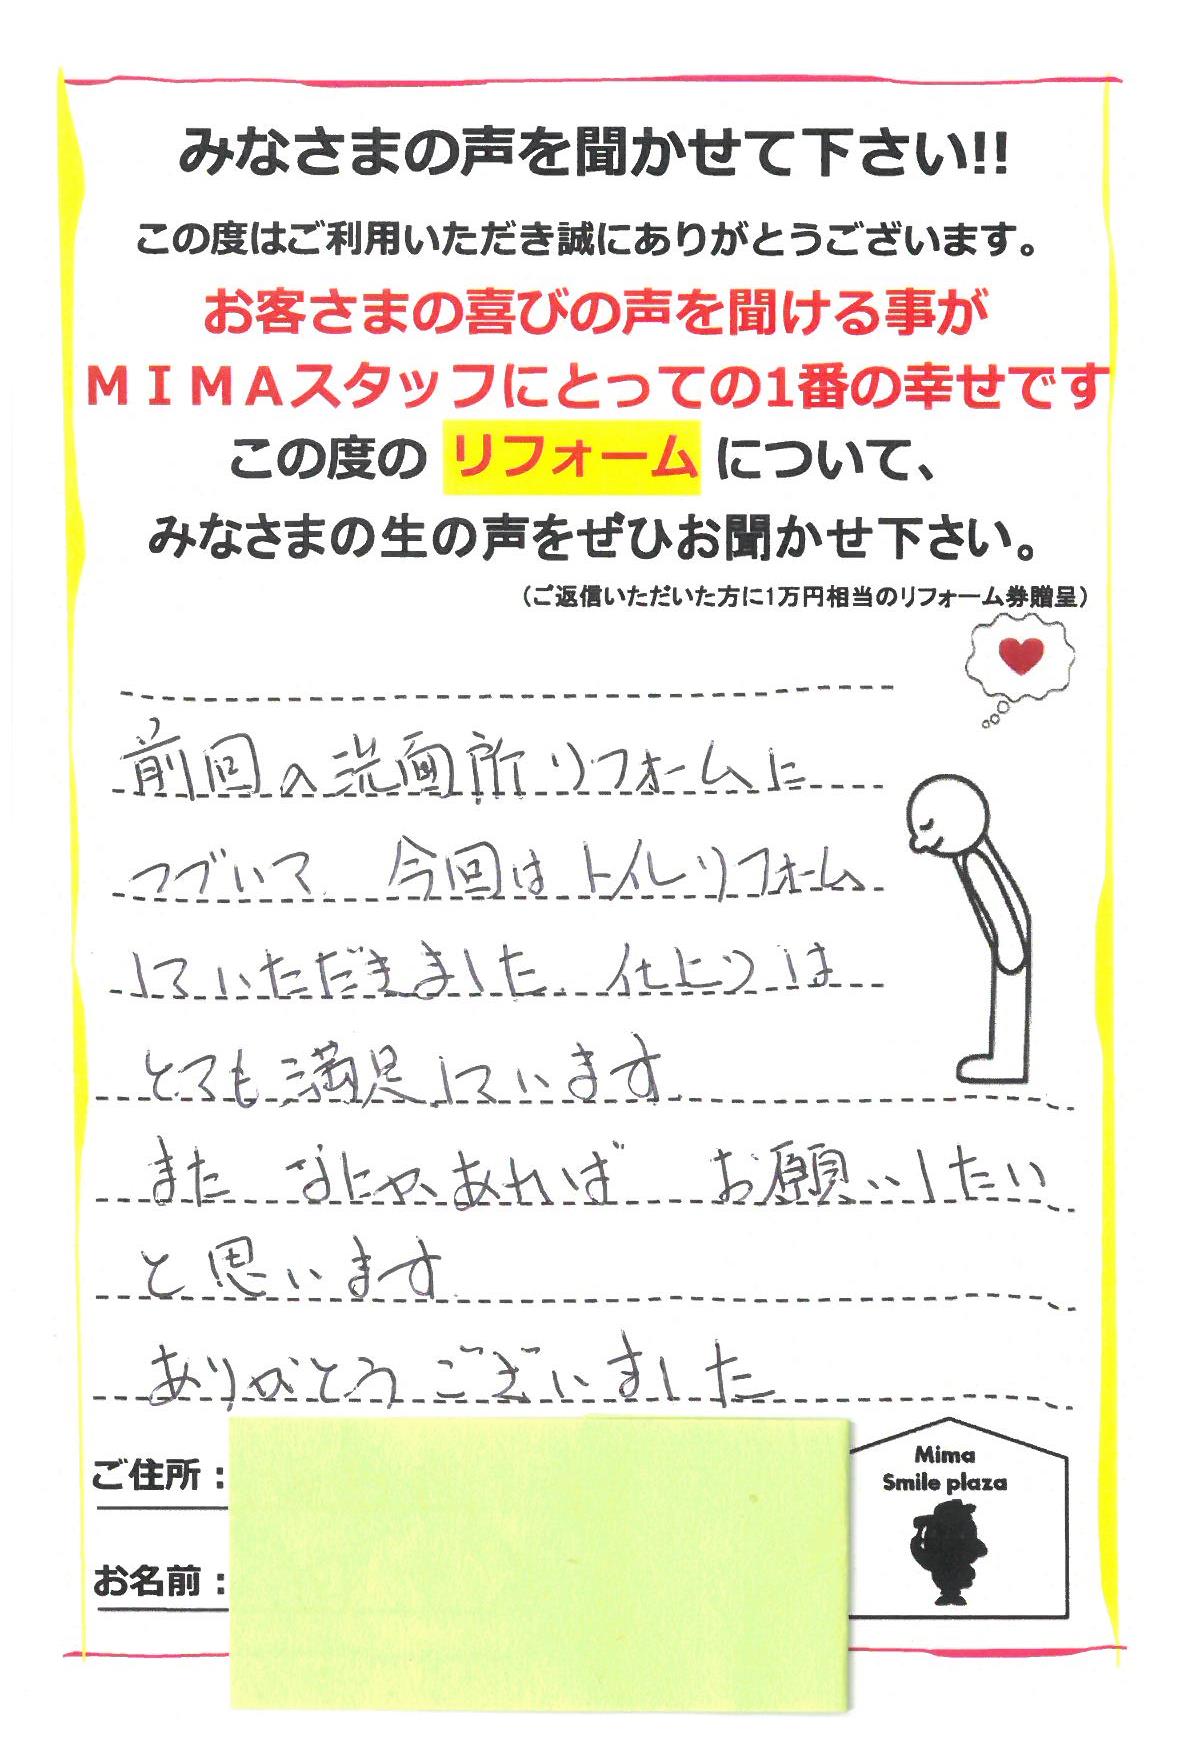 みなさまの声を聞かせて下さい!!
この度はご利用いただき誠にありがとうございます。
お客さまの喜びの声を聞ける事が
ＭＩＭＡスタッフにとっての1番の幸せです
この度の リフォーム について、
みなさまの生の声をぜひお聞かせ下さい。
（ご返信いただいた方に1万円相当のリフォーム券贈呈）
前回の洗面所リフォームに
つづいて、今回はトイレリフォーム
していただきました。仕上りは
とても満足しています。
また なにかあれば お願いしたい
と思います。
ありがとうございました
ご住所：
お名前：
Mima
Smile plaza